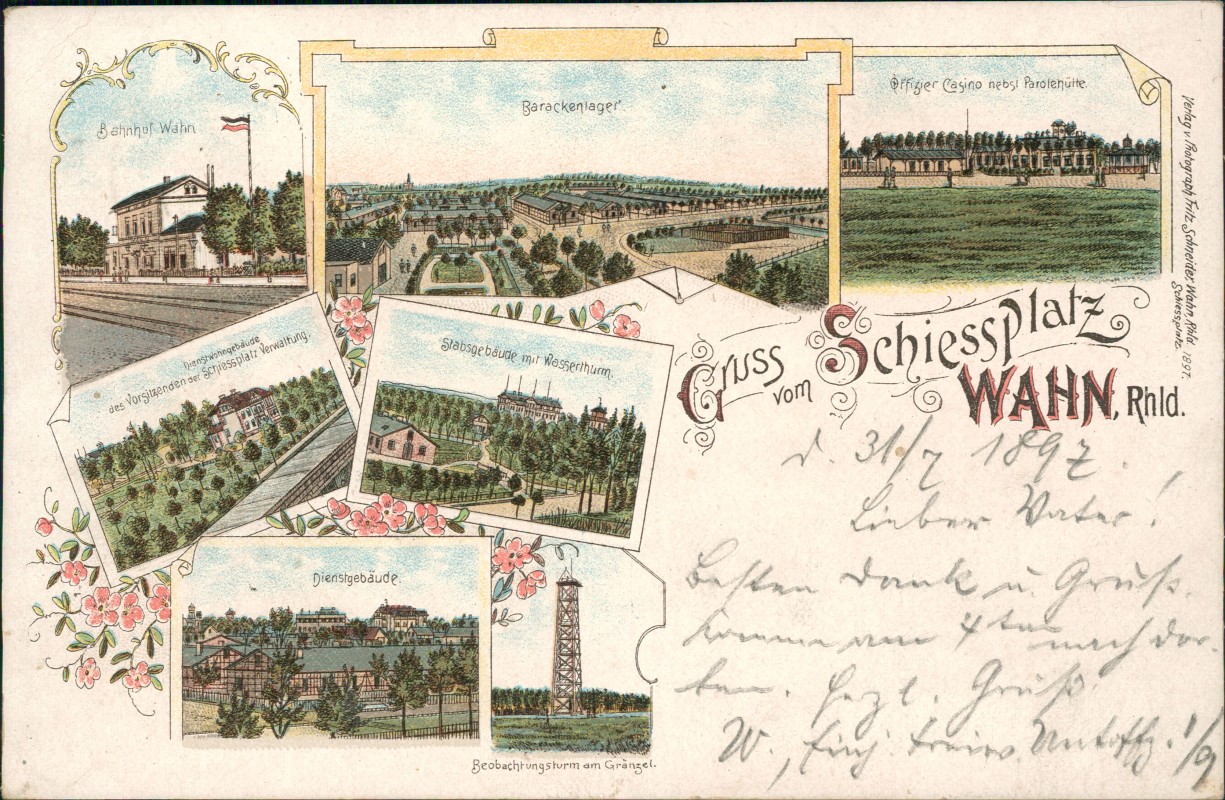 Bahnhof Wahn
Barackenlager
Offizier Casino nebst Parolehütte.
Verlag v. Photograph Fritz Schneider, Wahn, Rhld. 1897.
Schiessplatz.
Dienstwohngebäude
des Vorsitzenden der Schiessplatz Verwaltung.
Stabsgebäude mit Wasserthurm.
Gruss vom Schiessplatz
WAHN, Rhld.
d. 31/7 1897.
Lieber Vater!
Besten Dank u. Gruß.
komme am 4ten nach Dor-
ten. Herzl. Gruß.
W.
Dienstgebäude.
Beobachtungsturm am Gränzel.